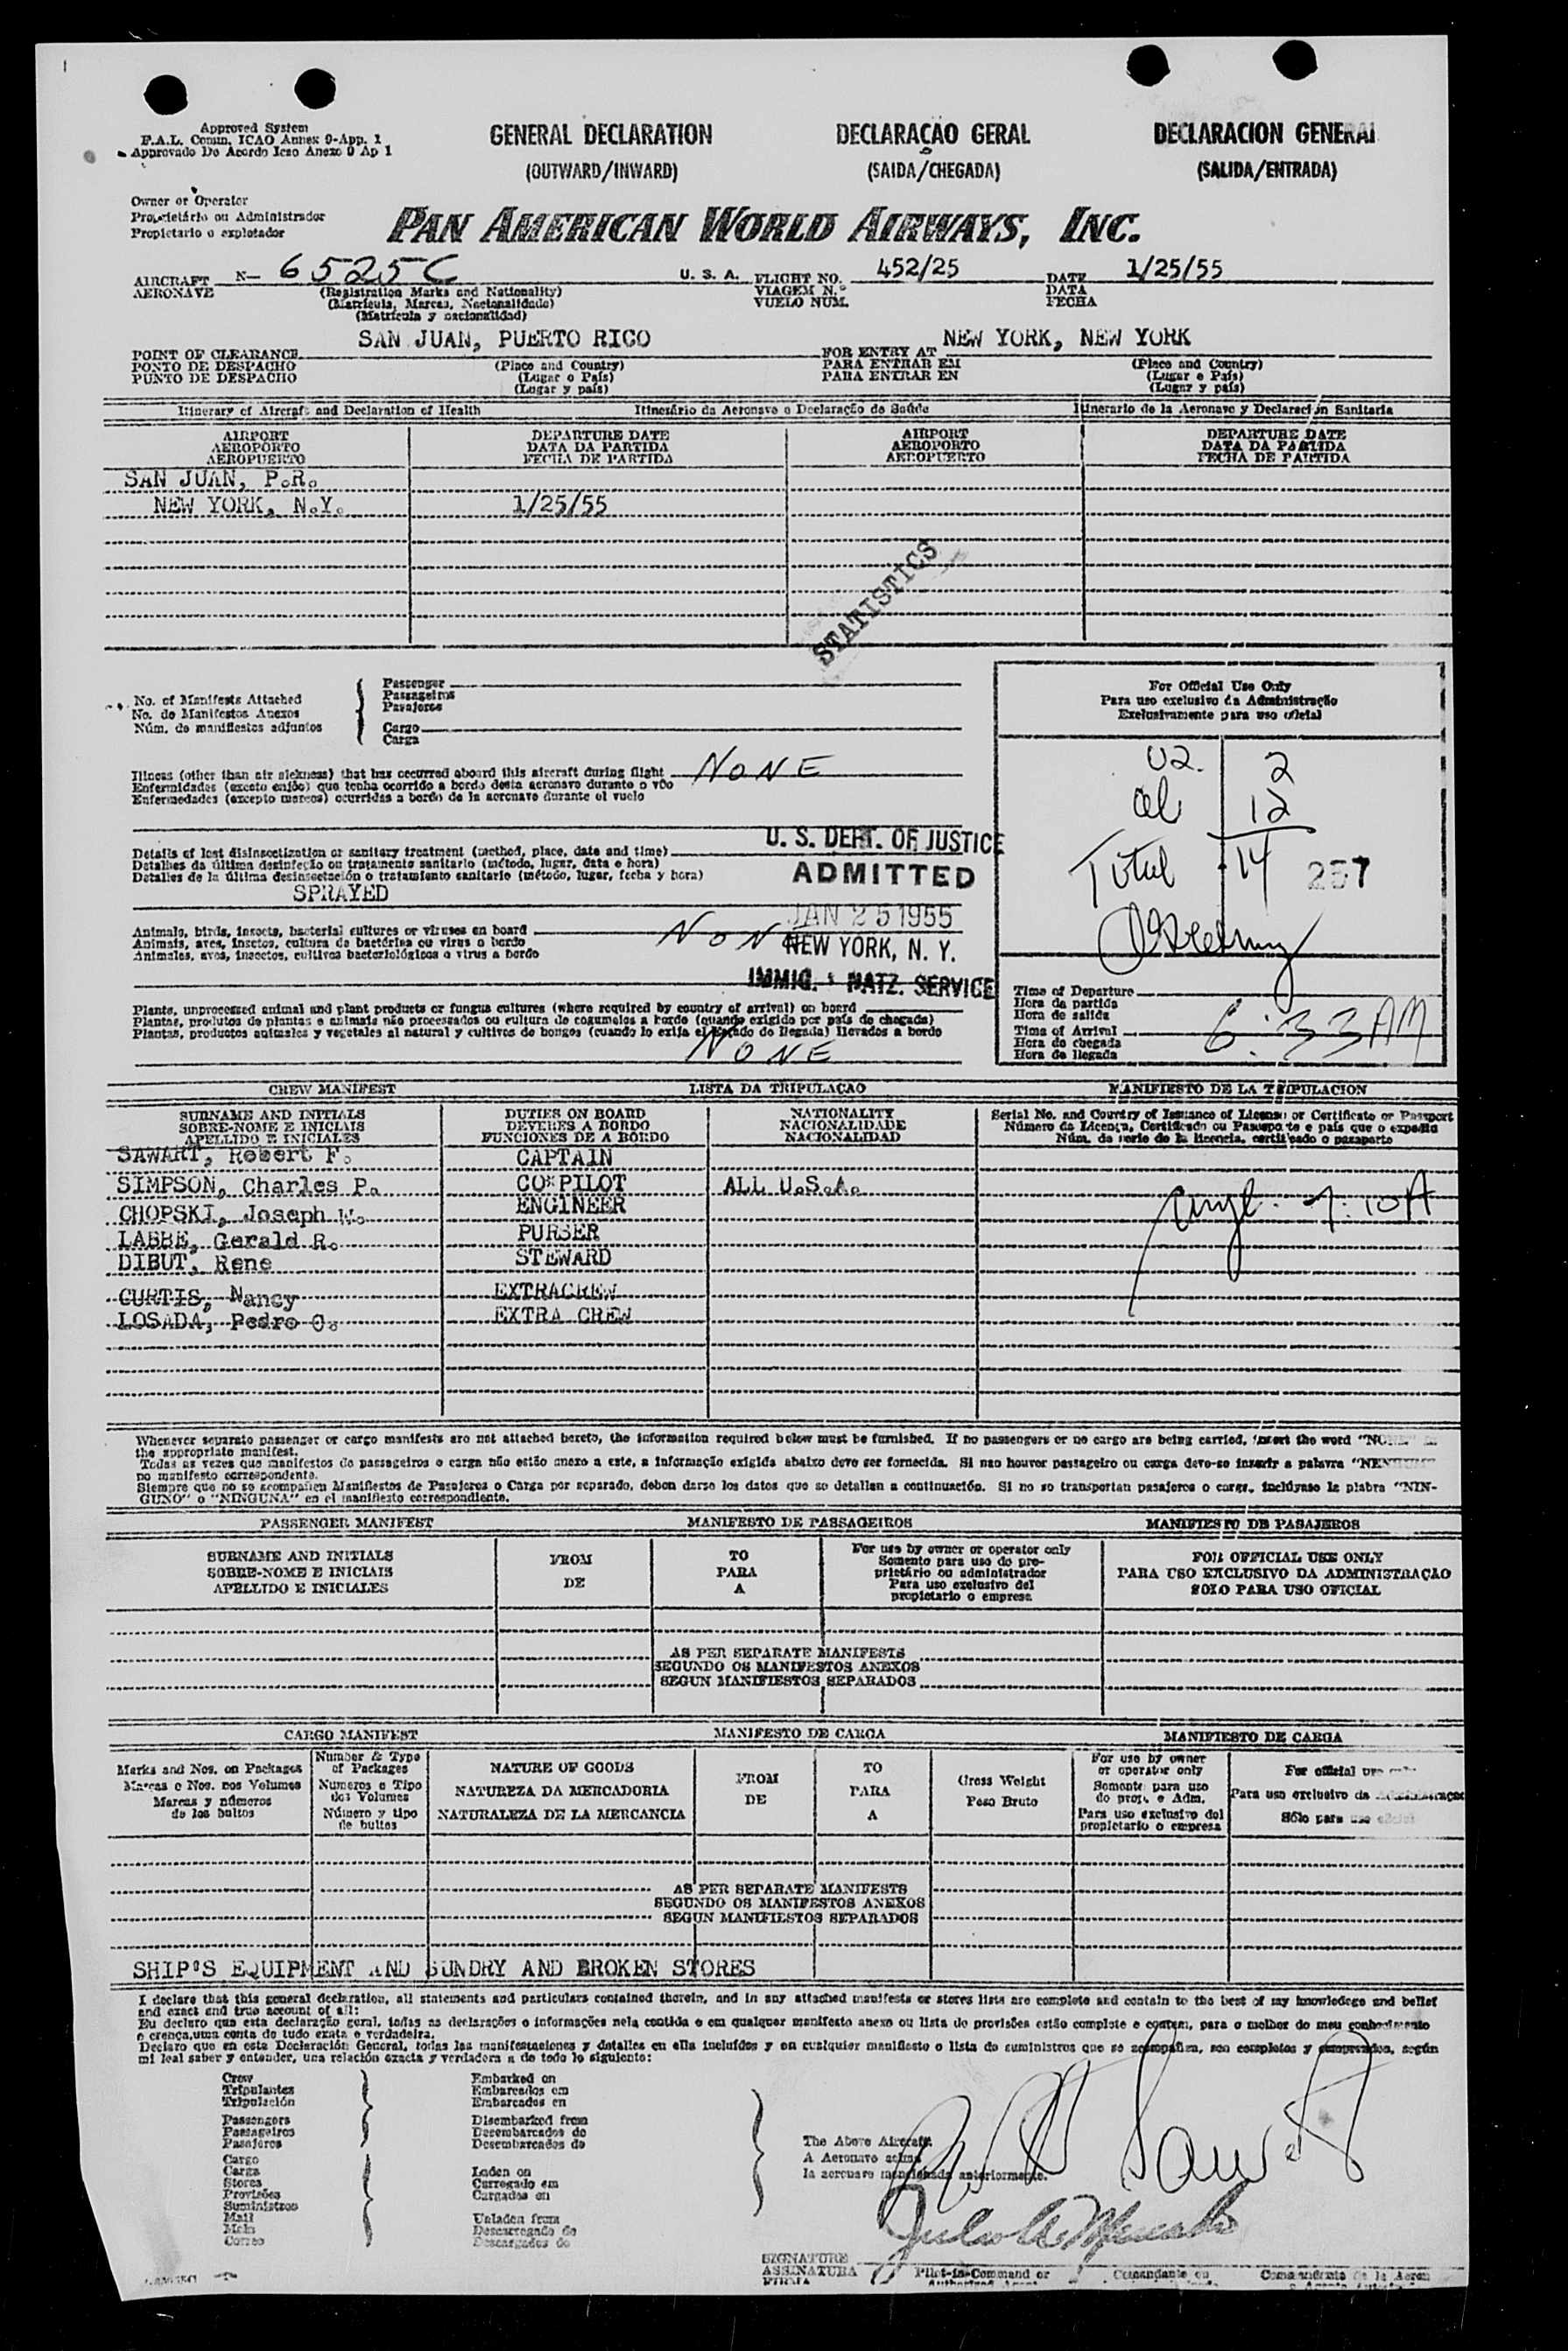 Approved System
F.A.L. Comun. ICAO Annex 9-App. 1
Approvado De Acordo Icao Anexo 9 Ap 1
GENERAL DECLARATION
(OUTWARD/INWARD)
DECLARAÇÃO GERAL
(SAIDA/CHEGADA)
DECLARACION GENERAL
(SALIDA/ENTRADA)
Owner or Operator
Proprietário ou Administrador
Propietario o explotador
PAN AMERICAN WORLD AIRWAYS, INC.
AIRCRAFT N- 6525C U. S. A. FLIGHT NO. 452/25 DATE 1/25/55
AERONAVE (Registration Marks and Nationality) VIAGEM N.º DATA
(Matricula, Marcas, Nacionalidade) VUELO NUM. FECHA
(Matricula y nacionalidad)
SAN JUAN, PUERTO RICO NEW YORK, NEW YORK
POINT OF CLEARANCE FOR ENTRY AT
PONTO DE DESPACHO (Place and Country) PARA ENTRAR EM (Place and Country)
PUNTO DE DESPACHO (Lugar o País) PARA ENTRAR EN (Lugar e País)
(Lugar y país) (Lugar y país)
Itinerary of Aircraft and Declaration of Health Itinerário da Aeronave e Declaração de Saúde Itinerario de la Aeronave y Declaración Sanitaria
AIRPORT DEPARTURE DATE AIRPORT DEPARTURE DATE
AEROPORTO DATA DA PARTIDA AEROPORTO DATA DA PARTIDA
AEROPUERTO FECHA DE PARTIDA AEROPUERTO FECHA DE PARTIDA
SAN JUAN, P.R.
NEW YORK, N.Y. 1/25/55
STATISTICS
No. of Manifests Attached
No. de Manifestos Anexos
Núm. de manifiestos adjuntos
Passenger
Passageiros
Pasajeros
Cargo
Carga
For Official Use Only
Para uso exclusivo da Administração
Exclusivamente para uso oficial
2
12
Total 14 257
Illness (other than air sickness) that has occurred aboard this aircraft during flight NONE
Enfermidades (exceto enjôo) que tenha ocorrido a bordo desta aeronave durante o vôo
Enfermedades (excepto mareos) ocurridas a bordo de la aeronave durante el vuelo
Details of last disinsectization or sanitary treatment (method, place, date and time)
Detalhes da última desinfeção ou tratamento sanitario (método, lugar, data e hora)
Detalles de la última desinsectación o tratamiento sanitario (método, lugar, fecha y hora)
SPRAYED
U. S. DEPT. OF JUSTICE
ADMITTED
JAN 25 1955
NEW YORK, N. Y.
IMMIG. & NATZ. SERVICE
Animals, birds, insects, bacterial cultures or viruses on board NONE
Animais, aves, insetos, cultura de bactérias ou virus a bordo
Animales, aves, insectos, cultivos bacteriológicos o virus a bordo
Plants, unprocessed animal and plant products or fungus cultures (where required by country of arrival) on board
Plantas, produtos de plantas e animais não processados ou cultura de cogumelos a bordo (quando exigido por país de chegada)
Plantas, productos animales y vegetales al natural y cultivos de hongos (cuando lo exija el Estado de llegada) llevados a bordo
NONE
Time of Departure
Hora da partida
Hora de salida
Time of Arrival 6:33 AM
Hora de chegada
Hora de llegada
CREW MANIFEST LISTA DA TRIPULAÇAO MANIFIESTO DE LA TRIPULACION
SURNAME AND INITIALS DUTIES ON BOARD NATIONALITY Serial No. and Country of Issuance of License or Certificate or Passport
SOBRE-NOME E INICIAIS DEVERES A BORDO NACIONALIDADE Número da Licença, Certificado ou Passaporte e país que o expediu
APELLIDO E INICIALES FUNCIONES DE A BORDO NACIONALIDAD Núm. de serie de la licencia, certificado o pasaporte
SAWART, Robert F. CAPTAIN
SIMPSON, Charles P. CO*PILOT ALL U.S.A.
CHOPSKI, Joseph W. ENGINEER
7:10A
LABBE, Gerald R. PURSER
DIBUT, Rene STEWARD
CURTIS, Nancy EXTRACREW
LOSADA, Pedro C. EXTRA CREW
Whenever separate passenger or cargo manifests are not attached hereto, the information required below must be furnished. If no passengers or no cargo are being carried, insert the word "NONE"
the appropriate manifest.
Todas as vezes que manifestos de passageiros e carga não estão anexo a este, a informação exigida abaixo deve ser fornecida. Si nao houver passageiro ou carga deve-se inserir a palavra "NENHUM"
no manifesto correspondente.
Siempre que no se acompañen Manifiestos de Pasajeros o Carga por separado, deben darse los datos que se detallan a continuación. Si no se transportan pasajeros o carga, inclúyase la plabra "NIN-
GUNO" o "NINGUNA" en el manifiesto correspondiente.
PASSENGER MANIFEST MANIFESTO DE PASSAGEIROS MANIFIESTO DE PASAJEROS
SURNAME AND INITIALS
SOBRE-NOME E INICIAIS
APELLIDO E INICIALES
FROM
DE
TO
PARA
A
For use by owner or operator only
Somente para uso do pro-
prietário ou administrador
Para uso exclusivo del
propietario o empresa
FOR OFFICIAL USE ONLY
PARA USO EXCLUSIVO DA ADMINISTRAÇÃO
SOLO PARA USO OFICIAL
AS PER SEPARATE MANIFESTS
SEGUNDO OS MANIFESTOS ANEXOS
SEGUN MANIFIESTOS SEPARADOS
CARGO MANIFEST MANIFESTO DE CARGA MANIFIESTO DE CARGA
Marks and Nos. on Packages
Marcas e Nos. nos Volumes
Marcas y números
de los bultos
Number & Type
of Packages
Numeros e Tipo
dos Volumes
Número y tipo
de bultos
NATURE OF GOODS
NATUREZA DA MERCADORIA
NATURALEZA DE LA MERCANCIA
FROM
DE
TO
PARA
A
Gross Weight
Peso Bruto
For use by owner
or operator only
Somente para uso
do prop. e Adm.
Para uso exclusivo del
propietario o empresa
For official use only
Para uso exclusivo da Administraçao
Sólo para uso oficial
AS PER SEPARATE MANIFESTS
SEGUNDO OS MANIFESTOS ANEXOS
SEGUN MANIFIESTOS SEPARADOS
SHIP'S EQUIPMENT AND SUNDRY AND BROKEN STORES
I declare that this general declaration, all statements and particulars contained therein, and in any attached manifests or stores lists are complete and contain to the best of my knowledege and belief
and exact and true account of all:
Eu declaro que esta declaração geral, todas as declarações e informações nela contida e em qualquer manifesto anexo ou lista de provisões estão complete e contem, para o melhor do meu conhecimento
e crença,uma conta de tudo exata e verdadeira.
Declaro que en esta Declaración General, todas las manifestaciones y detalles en ella incluídos y en cualquier manifiesto o lista de suministros que se acompañen, son completos y comprenden, según
mi leal saber y entender, una relación exacta y verdadera a de todo lo siguiente:
Crew
Tripulantes
Tripulación
Passengers
Passageiros
Pasajeros
Cargo
Carga
Stores
Provisões
Suministros
Mail
Mala
Correo
Embarked on
Embarcados em
Embarcados en
Disembarked from
Desembarcados do
Desembarcados de
Laden on
Carregado em
Cargados en
Unladen from
Descarregado de
Descargados de
The Above Aircraft.
A Aeronave acima
la aeronave mencionada anteriormente.
SIGNATURE
ASSINATURA
FIRMA
Pilot-in-Command or
Authorized Agent
Comandante ou
Comandante de la Aeron